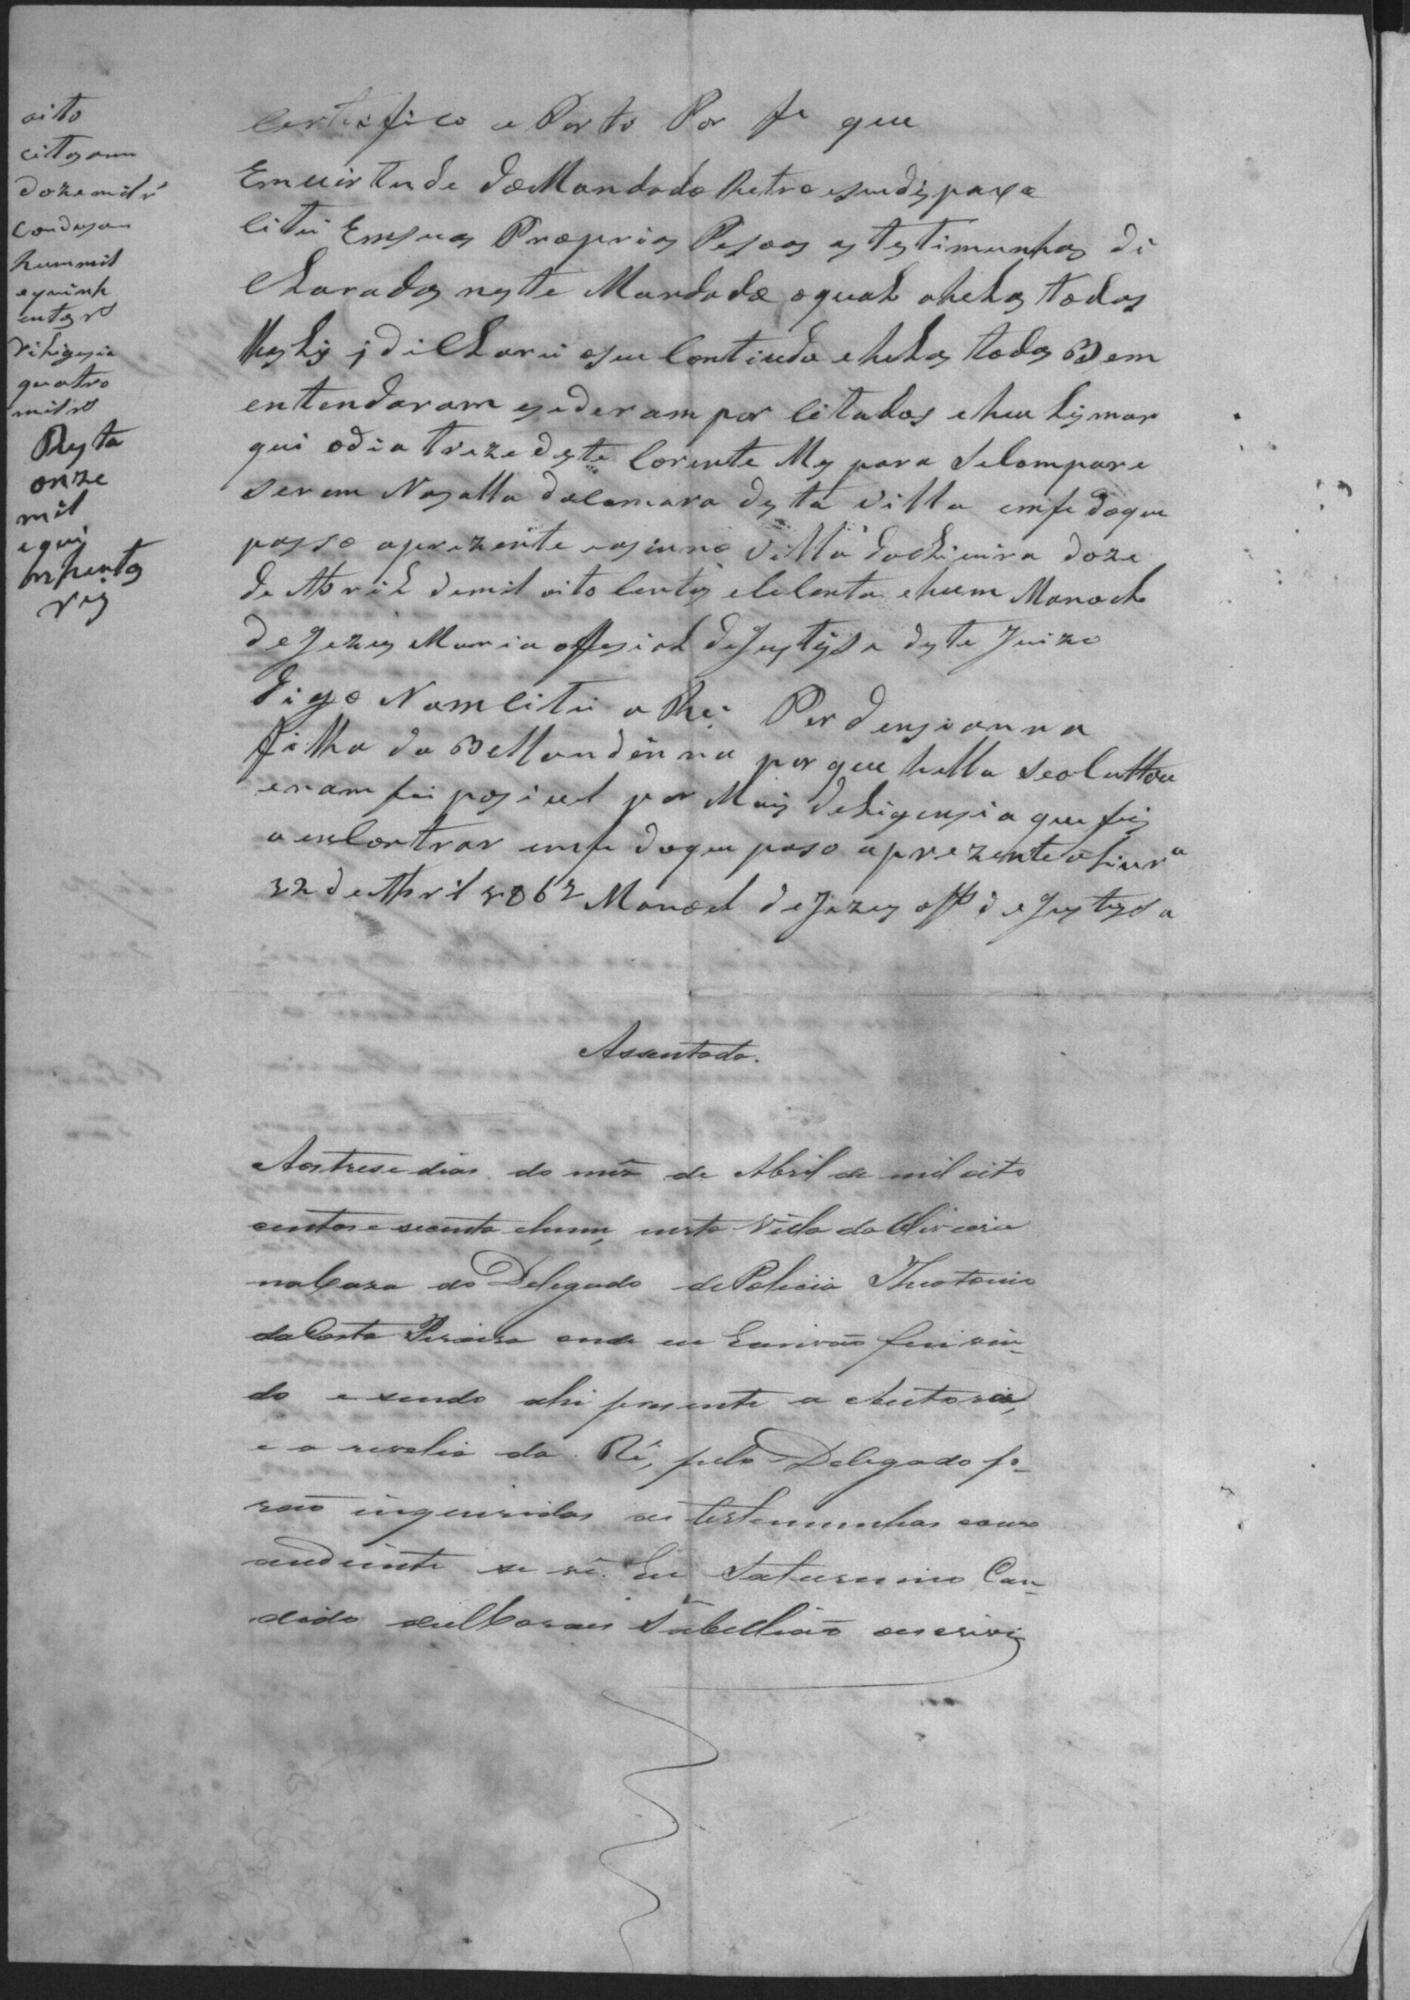 oito
citasam
doze mil rˢ
condusam
hum mil
e quinh
entos rˢ
dihigesia
quatro
mil rˢ
Resta
onze
mil
e qui
nhentos
reis
Certefico e Porto Por fe que
Emvirtude do Mandado Retro
citei Em suas Proprias Pesoas as testimunhas de
Claradas neste Mandado o qual a hellas todas
lhes li i dicllarei o seu Contiudo e hellas todas Bem
entendaram e se deram por Citados e heu lhes mar
qui o dia treze deste Corente Mes para se Compare
serem Na salla da Camara desta villa em fe do que
posso a prezente casinno Villa da Oliveira doze
de Abril de mil oito Centos e Cecenta e hum Manoel
de Jezus Maria Offesial de Justisa deste Juizo
digo Nam Citei a Ré Perdensianna
filha da Bellandinna por que hella se ocultou
e nam foi posivel por Mais dehigensia que fis
a encontrar em fe do que paso a prezente Oliurª
12 de Abril 1861 Manoel de Jezus offˡ de Justisa
Assentada.
Aos trese dias do mez de Abril de mil oito
centos e secenta e hum, nesta Villa da Oliveira
na Caza do Delegado de Policia Theotonio
da Costa Pereira onde eu Escrivão fui vin-
do e sendo ahi presente a Autora,
e a revelia da Ré, pelo Delegado fo-
rão inqueridas as testemunhas como
audiante se vê. Eu Saturnino Can-
dido de Moraes Tabellião o escrivi